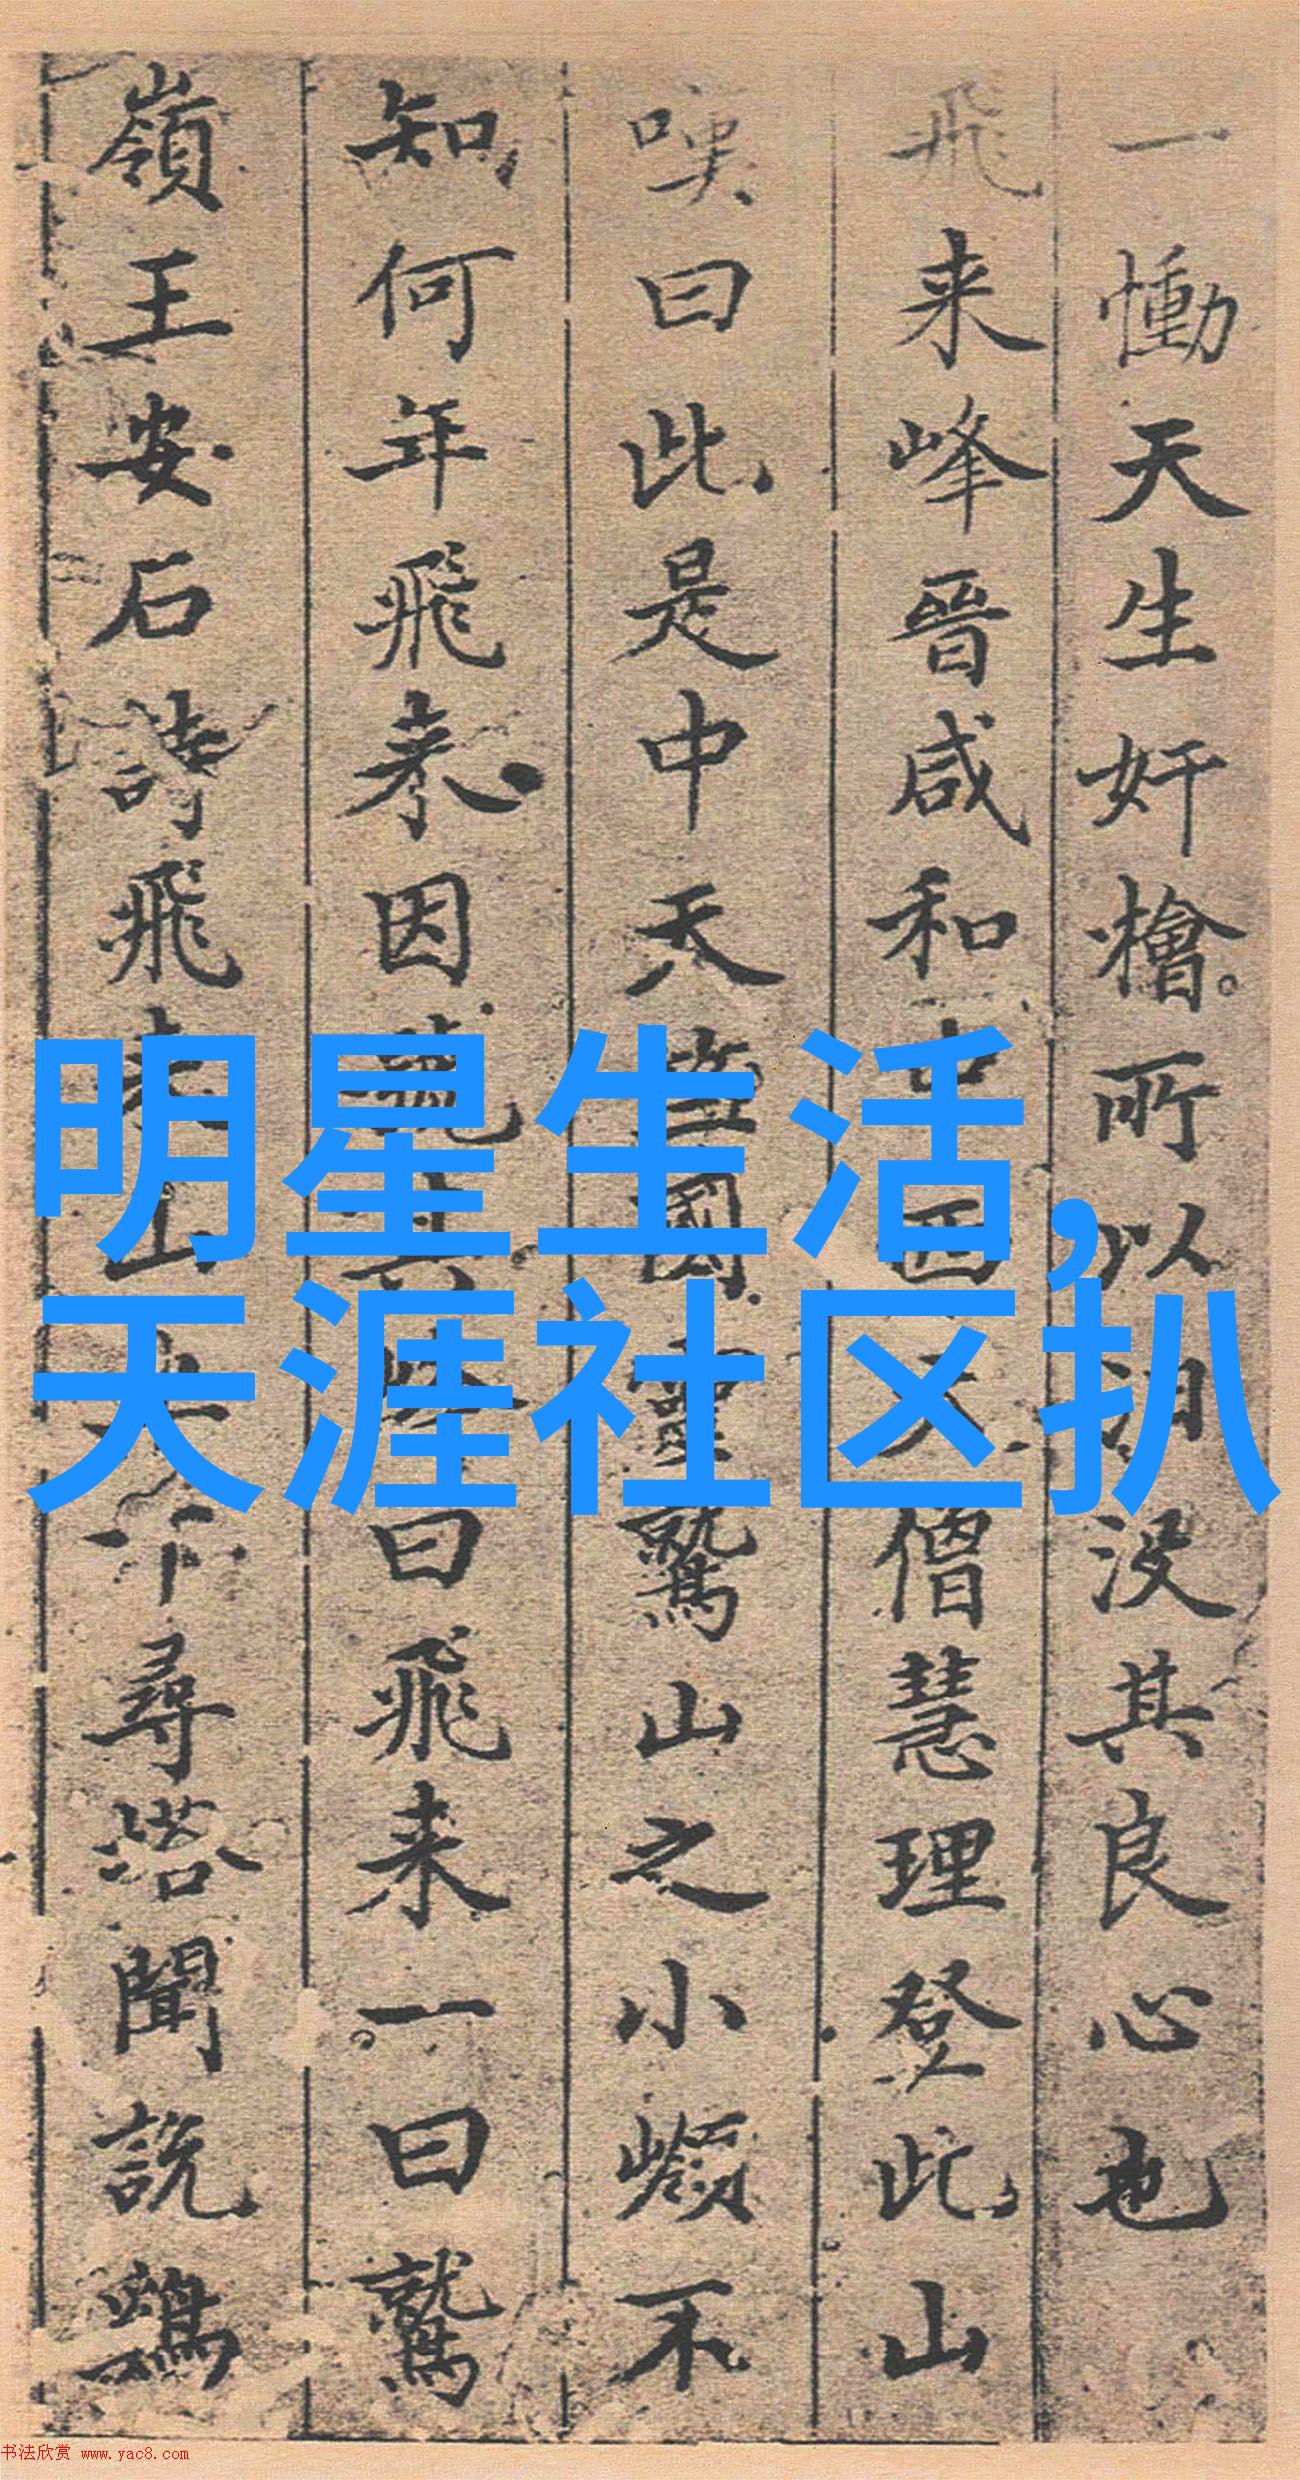 一慟天生奸檜所以汨没其良心也
飛来峰晉咸和中西天僧慧理登此山
嘆曰此是中天竺國靈鷲山之小嶺不
知何年飛来因號其峰曰飛来一曰鷲
嶺王安石詩飛来山上千尋塔聞説鷄
明星生活,
天涯社区扒
书法欣赏 www.yac8.com